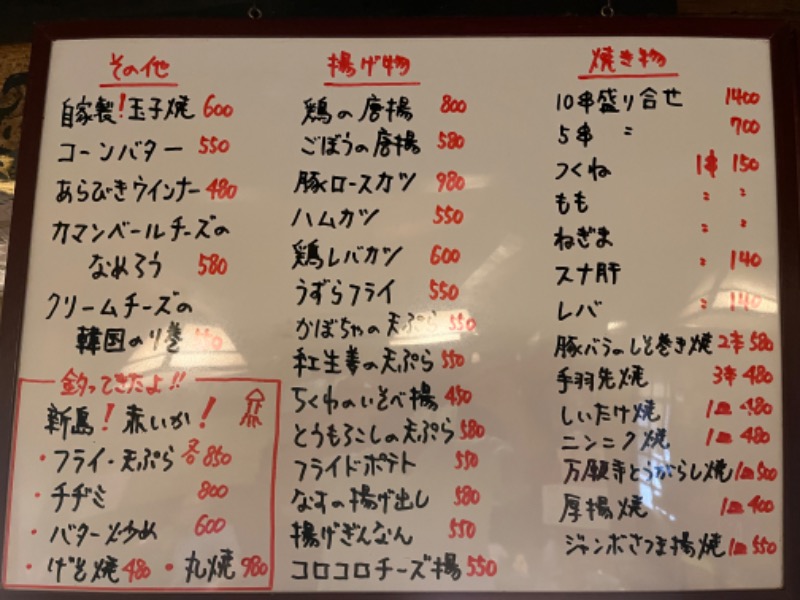 その他
自家製!玉子焼 600
コーンバター 550
あらびきウインナー 480
カマンベールチーズの
なめろう 580
クリームチーズの
韓国のり巻 550
釣ってきたよ!!
新島!赤いか!
・フライ・天ぷら 各850
・チヂミ 800
・バター炒め 600
・げそ焼 480 ・丸焼 980
揚げ物
鶏の唐揚 800
ごぼうの唐揚 580
豚ロースカツ 980
ハムカツ 550
鶏レバカツ 600
うずらフライ 550
かぼちゃの天ぷら 550
紅生姜の天ぷら 550
ちくわのいそべ揚 450
とうもろこしの天ぷら 580
フライドポテト 550
なすの揚げ出し 580
揚げぎんなん 550
コロコロチーズ揚 550
焼き物
10串盛り合せ 1400
5串 〃 700
つくね 1串 150
もも 〃 〃
ねぎま 〃 〃
スナ肝 〃 140
レバ 〃 140
豚バラのしそ巻き焼 2串 580
手羽先焼 3串 480
しいたけ焼 1皿 480
ニンニク焼 1皿 480
万願寺とうがらし焼 1皿 500
厚揚焼 1皿 400
ジャンボさつま揚焼 1皿 550